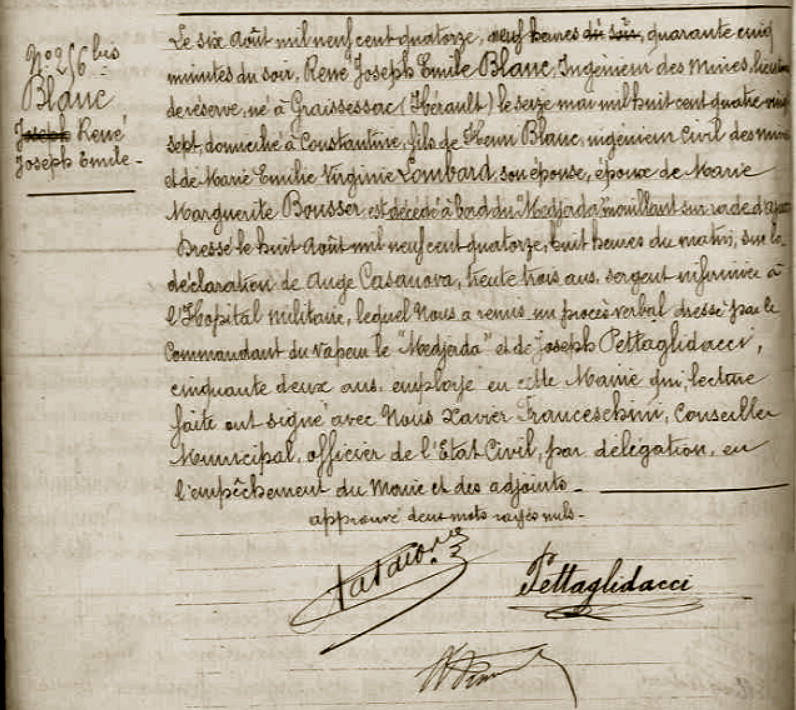 N° 256 bis
Blanc
Joseph René
Joseph Emile -
Le six Août mil neuf cent quatorze, neuf heures du soir, quarante cinq
minutes du soir, René Joseph Emile Blanc, Ingénieur des Mines,
de réserve, né à Graissessac (Hérault) le seize mai mil huit cent quatre vingt
sept, domicilié à Constantine, fils de Henri Blanc, ingénieur Civil des mines
et de Marie Emilie Virginie Lombard, son épouse, époux de Marie
Marguerite Bousser est décédé à bord du "Medjerda" mouillant sur rade
Dressé le huit Août mil neuf cent quatorze, huit heures du matin, sur la
déclaration de Ange Casanova, trente trois ans, sergent infirmier à
l'Hopital militaire, lequel Nous a remis un procès verbal dressé par le
Commandant du vapeur le "Medjerda" et de Joseph Pettaglidacci,
cinquante deux ans, employé en cette Mairie qui, lecture
faite ont signé avec Nous Xavier Franceschini, Conseiller
Municipal, officier de l'Etat Civil, par délégation, en
l'empêchement du Maire et des adjoints -
approuvé deux mots rayés nuls -
Pettaglidacci